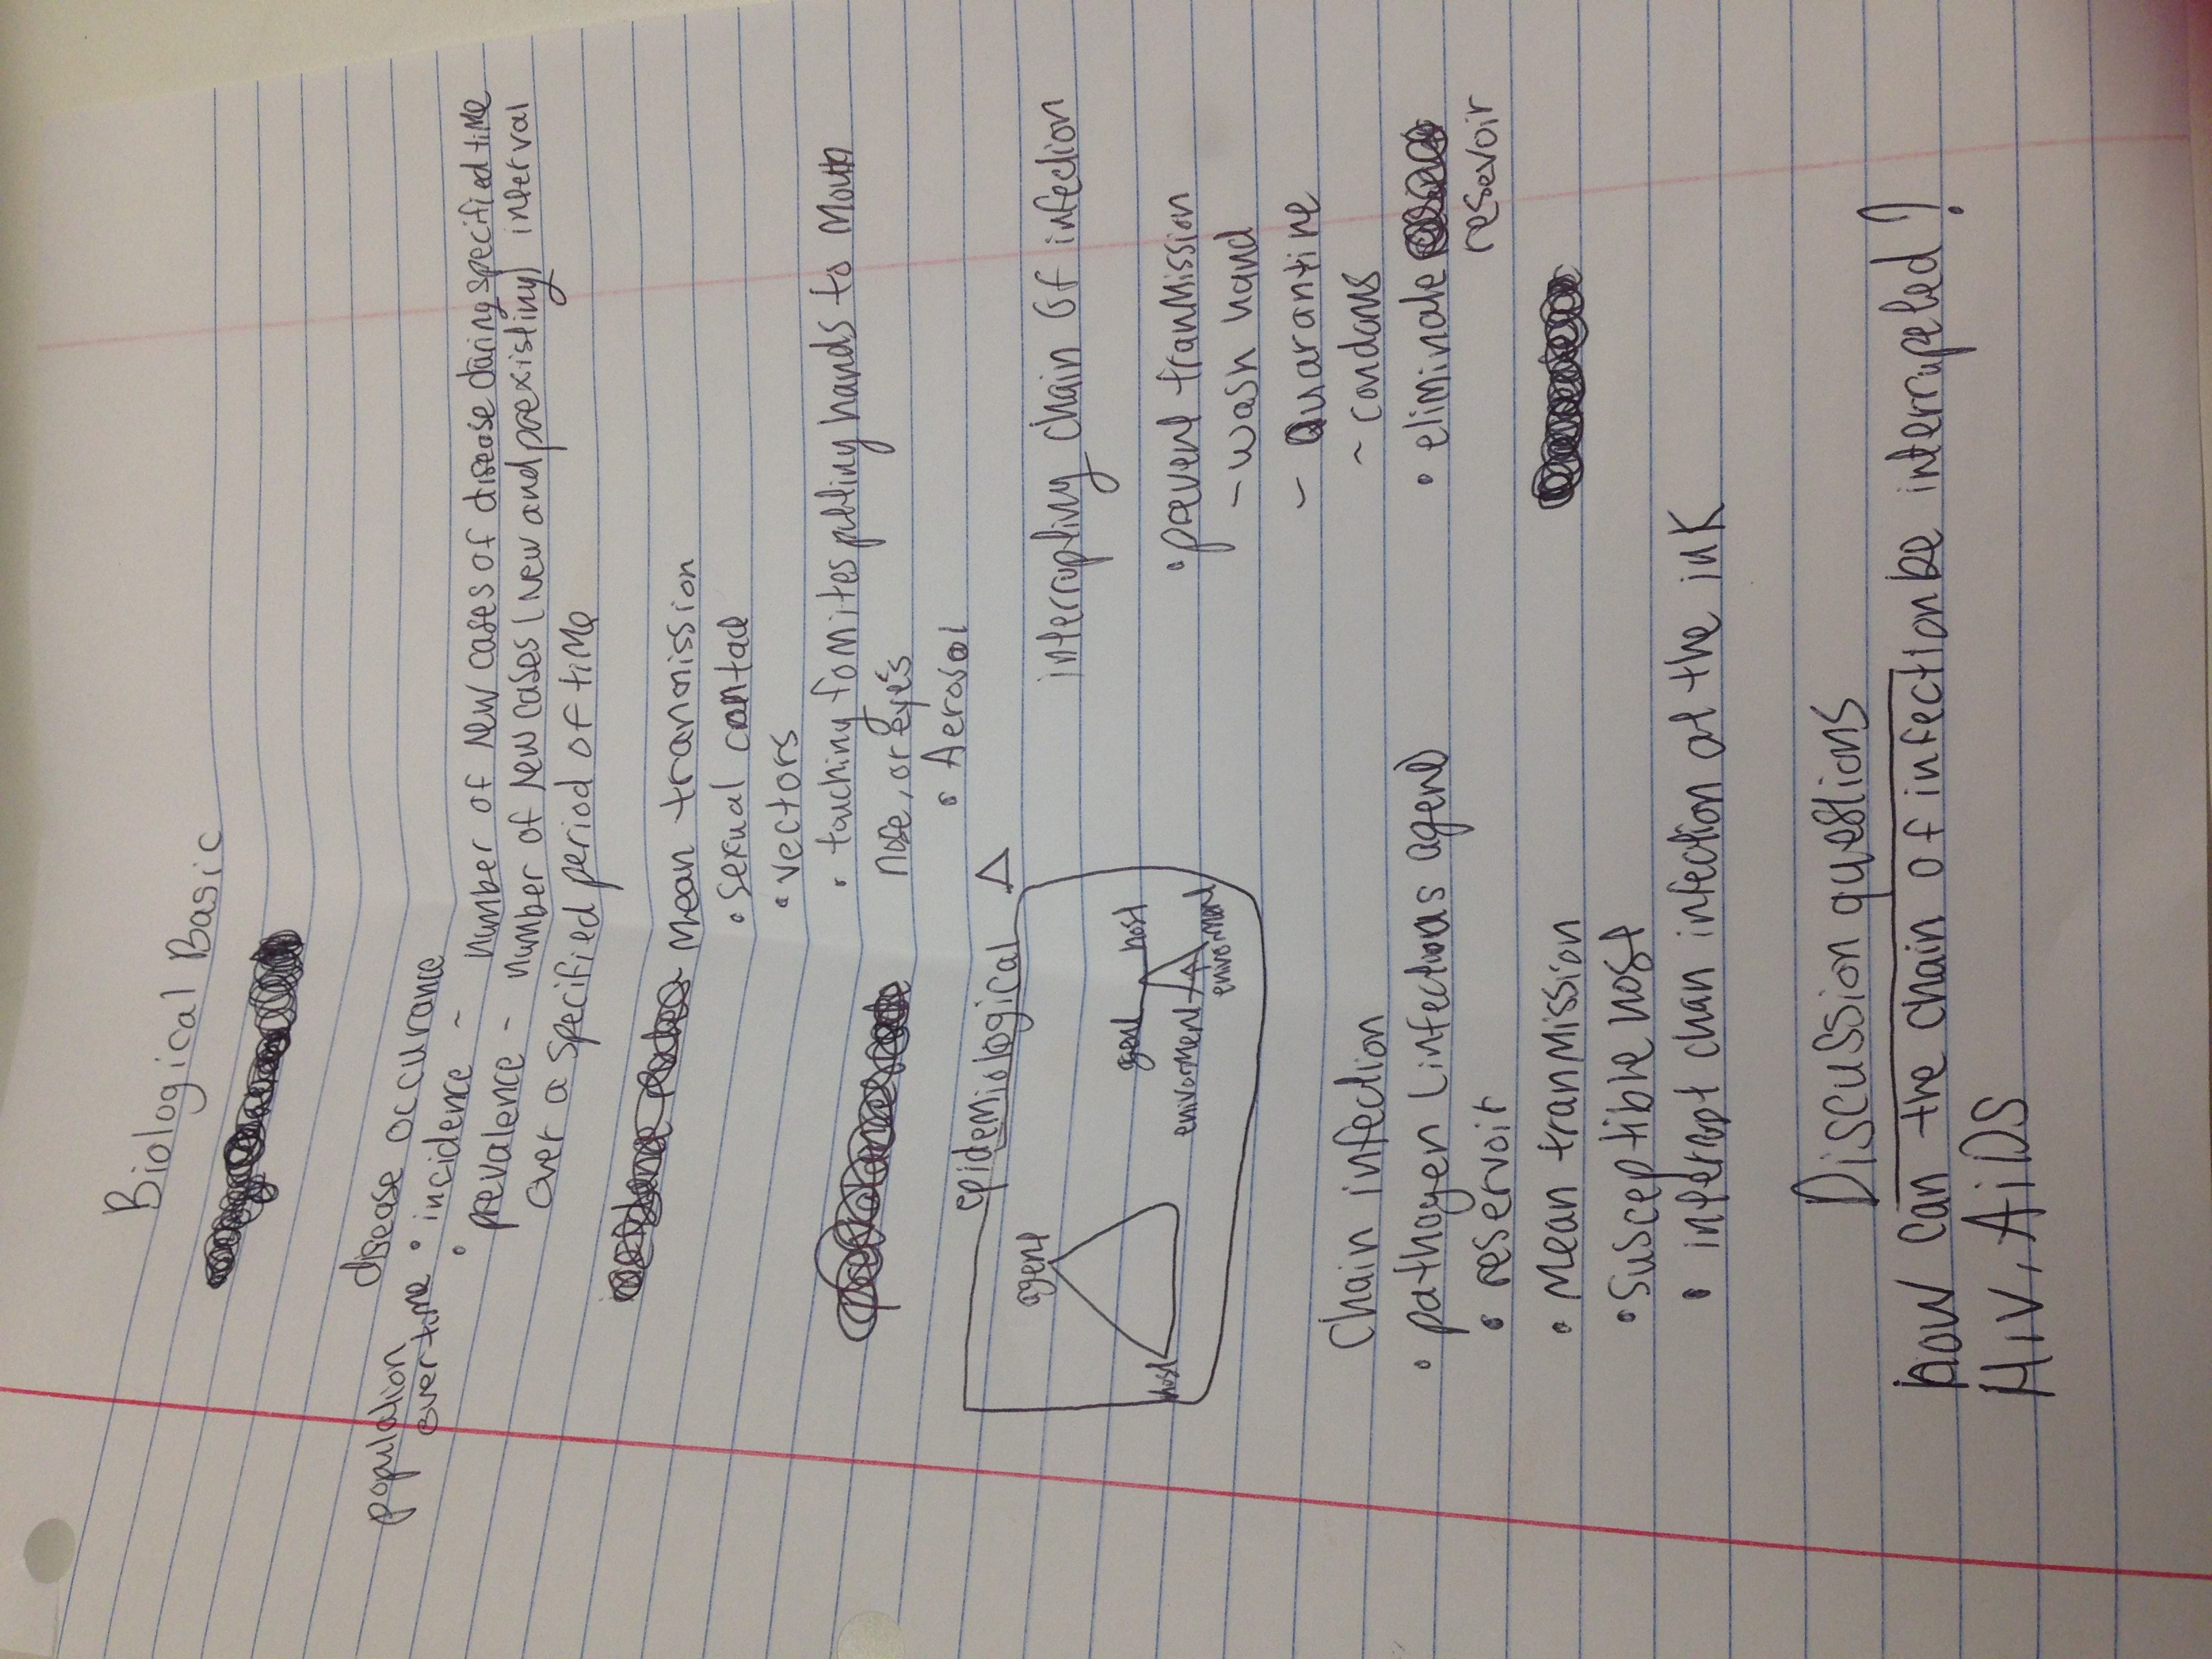 Biological Basic
disease occurance
population over time
• incidence - number of new cases of disease during specified time
• prevalence - number of new cases (new and preexisting) interval
over a specified period of time
Mean tranmission
• sexual contact
• vectors
• touching fomites putting hands to mouth
nose, or eyes
• Aerosol
epidemiological △
agent
host
agent host
enivorment
enivorment
interrupting chain of infection
• prevent tranmission
- wash hand
- Quarantine
- condoms
• eliminate
resevoir
Chain infection
• pathogen (infectious agent)
• reservoir
• Mean tranmission
• Susceptible host
• interrupt chan infection at the ink
Discussion questions
how can the chain of infection be interrupted?
HIV, AiDS